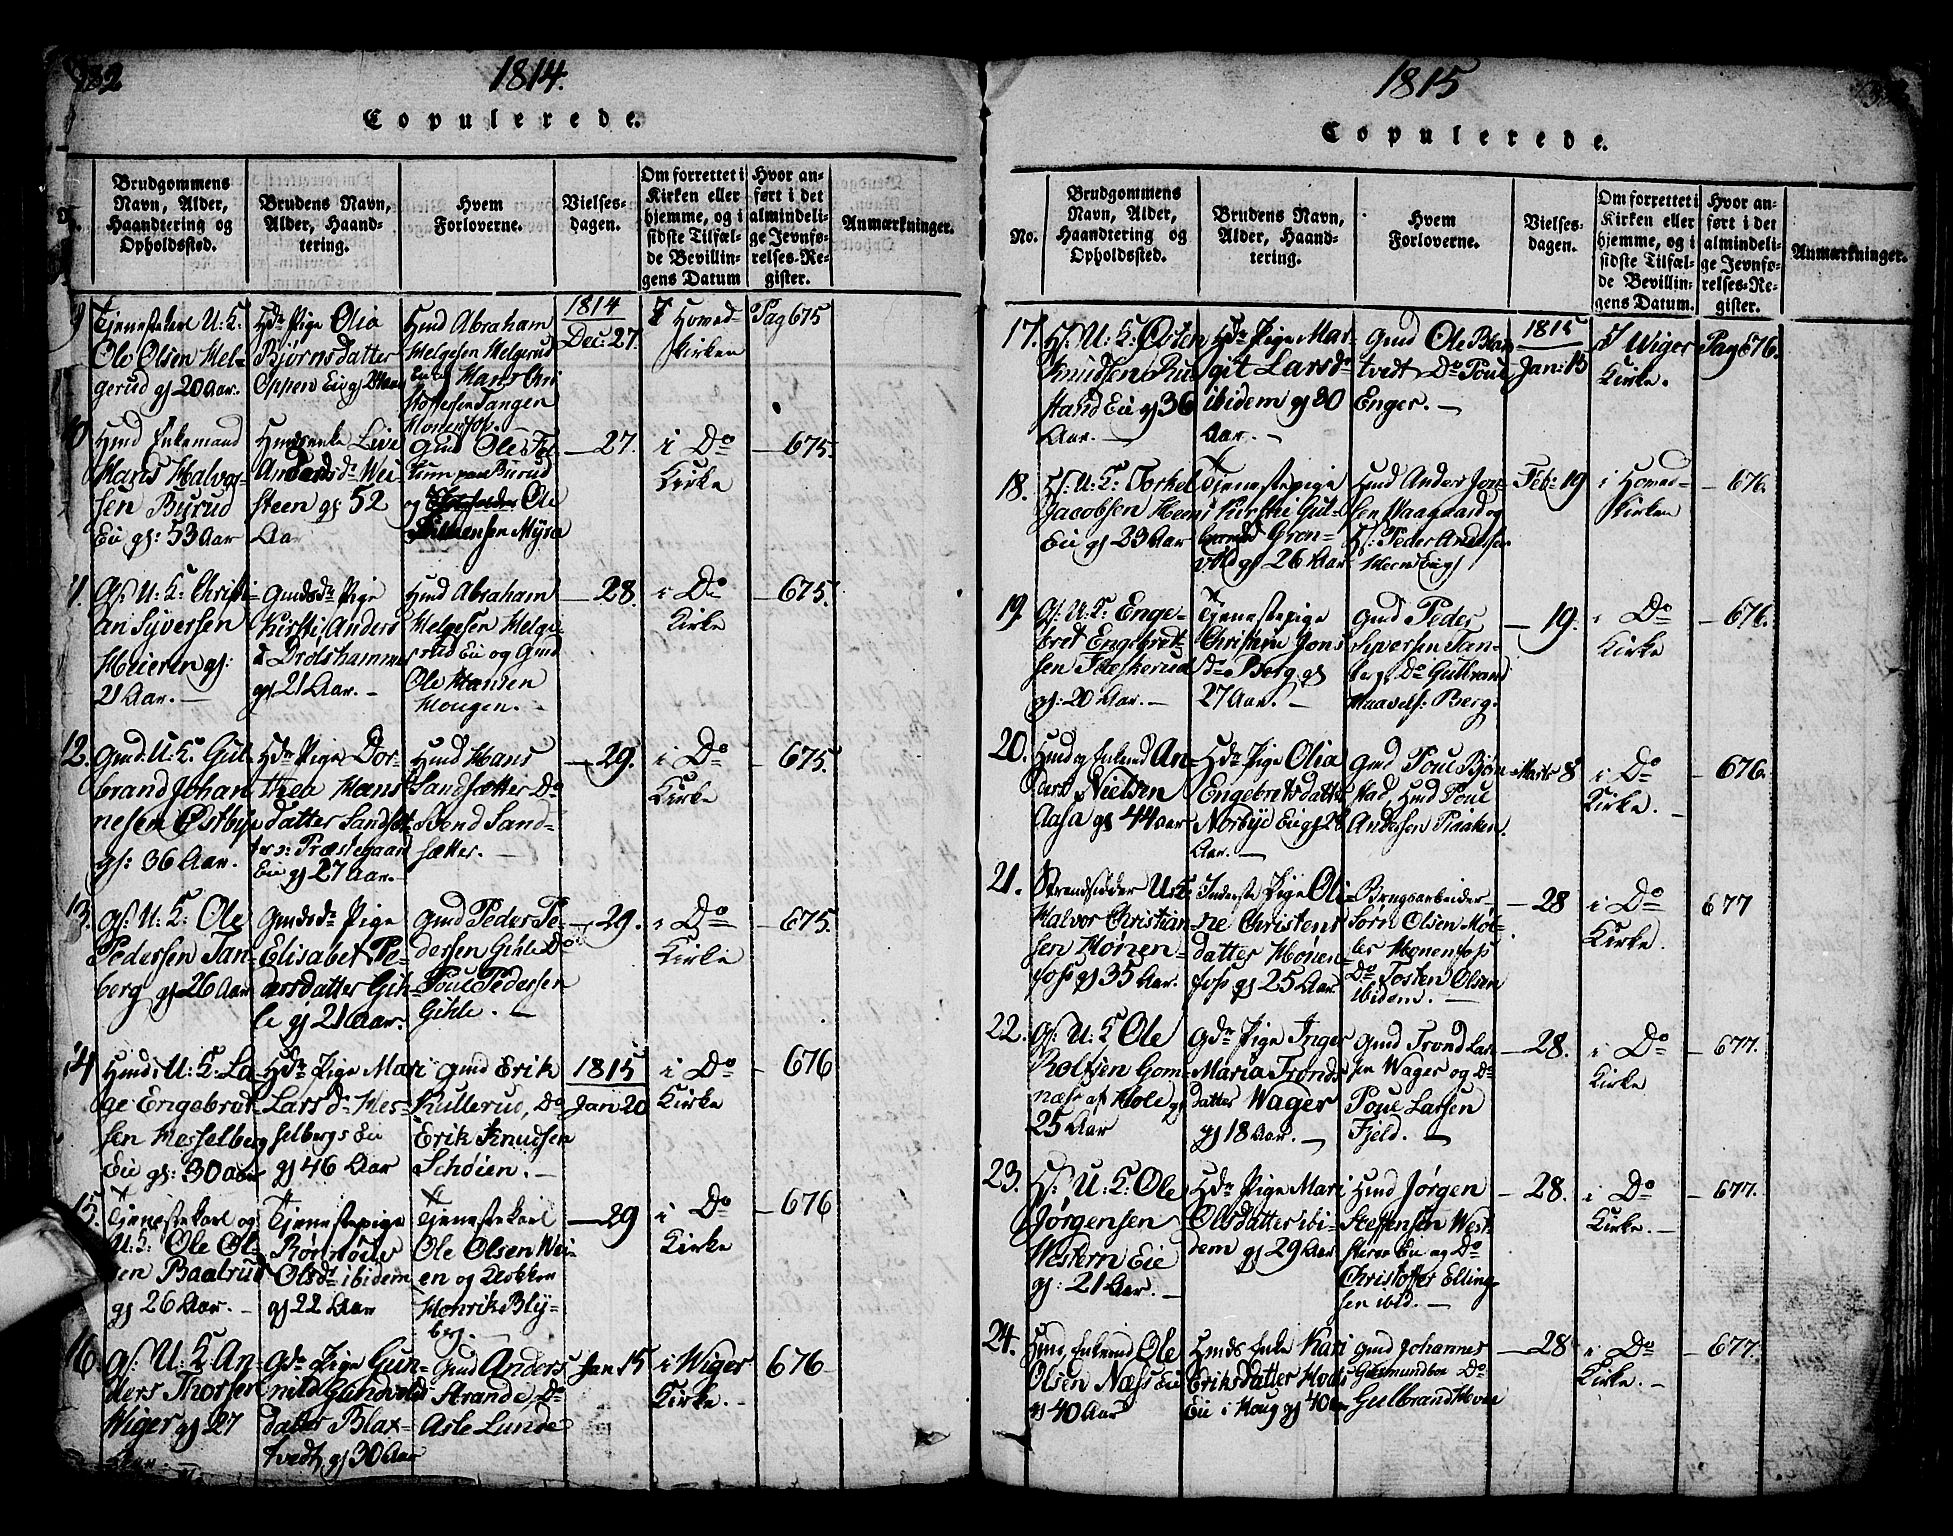 132
1814.
Copulerede.
Brudgommens
Navn, Alder,
Haandtering og
Opholdssted.
Brudens Navn,
Alder, Haand-
tering.
Hvem
Forloverne.
Vielses-
dagen.
Om forrettet i
Kirken eller
hjemme, og i
sidste Tilfæl-
de Bevillin-
gens Datum
Hvor an-
ført i det
almindeli-
ge Jevnfø-
relses-Re-
gister.
Anmærkninger.
9
Tjenestekarl U: K:
Ole Olsen Hel-
gerud gl 20 Aar.
Hdr Pige Olia
Bjørnsdatter
Oppen Eie gl
Hmd Abraham
Helgesen Helgerud
Hans Chri
stoffersen Tangen
Hønefos.
1814
Dec: 27.
Hoved-
kirken
Pag 675
10
Hmd Enkemand
Hans Halvor-
sen Burud
Eie gl: 53 Aar
Hmdsenke Live
Wei-
steen gl 52
Aar
Gmd Ole
Burud
og Ole
Myra
27.
i Do
Kirke
675.
11.
Gs: U: K: Christi-
an Syversen
Meieren gl:
21 Aar.
Gmdsdr Pige
Kirsti Anders
d Drolshammer
gl. 21 Aar.
Hmd Abraham
Helgesen Helge-
rud Eie og Gmd
Ole Hansen
Hougen.
28.
i Do
Kirke
675.
12.
Gmd: U: K: Gul-
brand Johan-
nesen Østbye
gl: 36 Aar.
Hdr Pige Dor-
thea Hans
datter Sandsæt-
Præstegaard
Eie gl 27 Aar.
Hmd Hans
Sandsætter Do
Svend Sand-
sætter.
29.
i Do
Kirke
675.
13.
Gs: U: K: Ole
Pedersen Tan-
berg gl 26 Aar
Gmdsdr Pige
Elisabet Pe-
dersdatter Gih-
le gl 21 Aar.
Gmd Peder Pe-
dersen Gihle Do
Poul Pedersen
Gihle.
29.
i Do
Kirke
675.
14
Hmd: U: K: La-
ge Engebret-
sen Hesselberg
Eie gl: 30 Aar
Hdr Pige Mari
Larsd Hes-
selbergs Eie
gl 46 Aar
Gmd Erik
Kullerud, Do
Erik Knudsen
Schøien.
1815
Jan 20
i Do
Kirke
676
15.
Tjenestekarl og
U: K: Ole Ol-
sen Baalrud
gl 26 Aar.
Tjenestepige
Olsdr ibidem
gl 22 Aar
Tjenestekarl
Ole Olsen Wei-
en og Klokker
Henrik Bly-
berg.
29
i Do
Kirke
676
16.
Gs: U: K An-
ders Thorsen
Wiger gl 27
Aar.
Gdr Pige Gun-
nild Gundvolds
datter Blax-
tvedt, gl 30 Aar
Gmd Anders
Strande, Do
Asle Lunde
Jan 15
i Wiger
Kirke.
676
1815
Copulerede.
No.
Brudgommens
Navn, Alder,
Haandtering og
Opholdssted.
Brudens Navn,
Alder, Haand-
tering.
Hvem
Forloverne.
Vielses-
dagen.
Om forrettet i
Kirken eller
hjemme, og i
sidste Tilfæl-
de Bevillin-
gens Datum.
Hvor an-
ført i det
almindeli-
ge Jevnfø-
relses-Re-
gister.
Anmærkninger.
17.
Hs: U: K: Østen
Knudsen Ru-
stand Eie gl 36
Aar.
Hdr Pige Mar-
git Larsdr
ibidem gl 30
Aar.
Gmd Ole Blax
tvedt Do Poul
Enger.
1815
Jan: 15
i Wiger
Kirke.
Pag 676.
18.
Hs: U: K: Torkel
Jacobsen Hem
Eie gl 23 Aar
Tjenestepige
Kirsti Gul-
brandsd Gron-
vold gl 26 Aar
Hmd Anders Jon-
sen Vaagaard og
Hs: Peder Andersen
Feb: 19
i Hoved-
kirken
676.
19.
Gs: U: K: Enge-
bret Engebret-
sen Fleskerud
gl: 20 Aar.
Tjenestepige
Christine Jons
Do Berg gl
27 Aar.
Gmd Peder
Syversen Tan-
berg, Do Gulbrand
Haavels: Berg.
19.
i Do
Kirke
676.
20.
Hmd og Enkemd An-
ders Nielsen
Aasa gl 44 Aar
Hdr Pige Olia
Engebretsdatter
Norbye Eie gl 28
Aar.
Gmd Poul Bjørn
stad, Hmd Poul
Andersen Plaaken.
Marts 8
i Do
Kirke.
676.
21.
Strandsidder U: K
Halvor Christian-
sen Hønen-
fos gl 35 Aar.
Inderste Pige Oli-
ne Christens
datter Hønen-
fos gl 25 Aar.
Brugsarbeider
Sørn Olsen Møl-
ler Hønenfos
Do Tosten Olsen
ibidem.
28
i Do
Kirke.
677
22.
Gs: U: K Ole
Rolfsen Gom-
næs af Hole gl
25 Aar
Gdr Pige Inger
Maria Tronds
datter Wager
gl 18 Aar.
Gmd Trond Lar-
sen Wager og Do
Poul Larsen
Fjeld.
28.
i Do
Kirke
677.
23.
Hs: U: K: Ole
Jørgensen
Western Eie
gl: 21 Aar.
Hdr Pige Mari
Olsdatter ibi-
dem gl 29 Aar
Hmd Jørgen
Steffensen West-
Eie og Do
Christoffer Elling-
sen ibd.
28.
i Do
Kirke.
677.
24.
Hmd Enkemd Ole
Olsen Næss Eie
gl 40 Aar
Hmds Enke Kari
Eriksdatter
Eie i Houg gl 40 Aar
Gmd Johannes
Germundboe Do
Gulbrand
28
i Do
Kirke.
677.